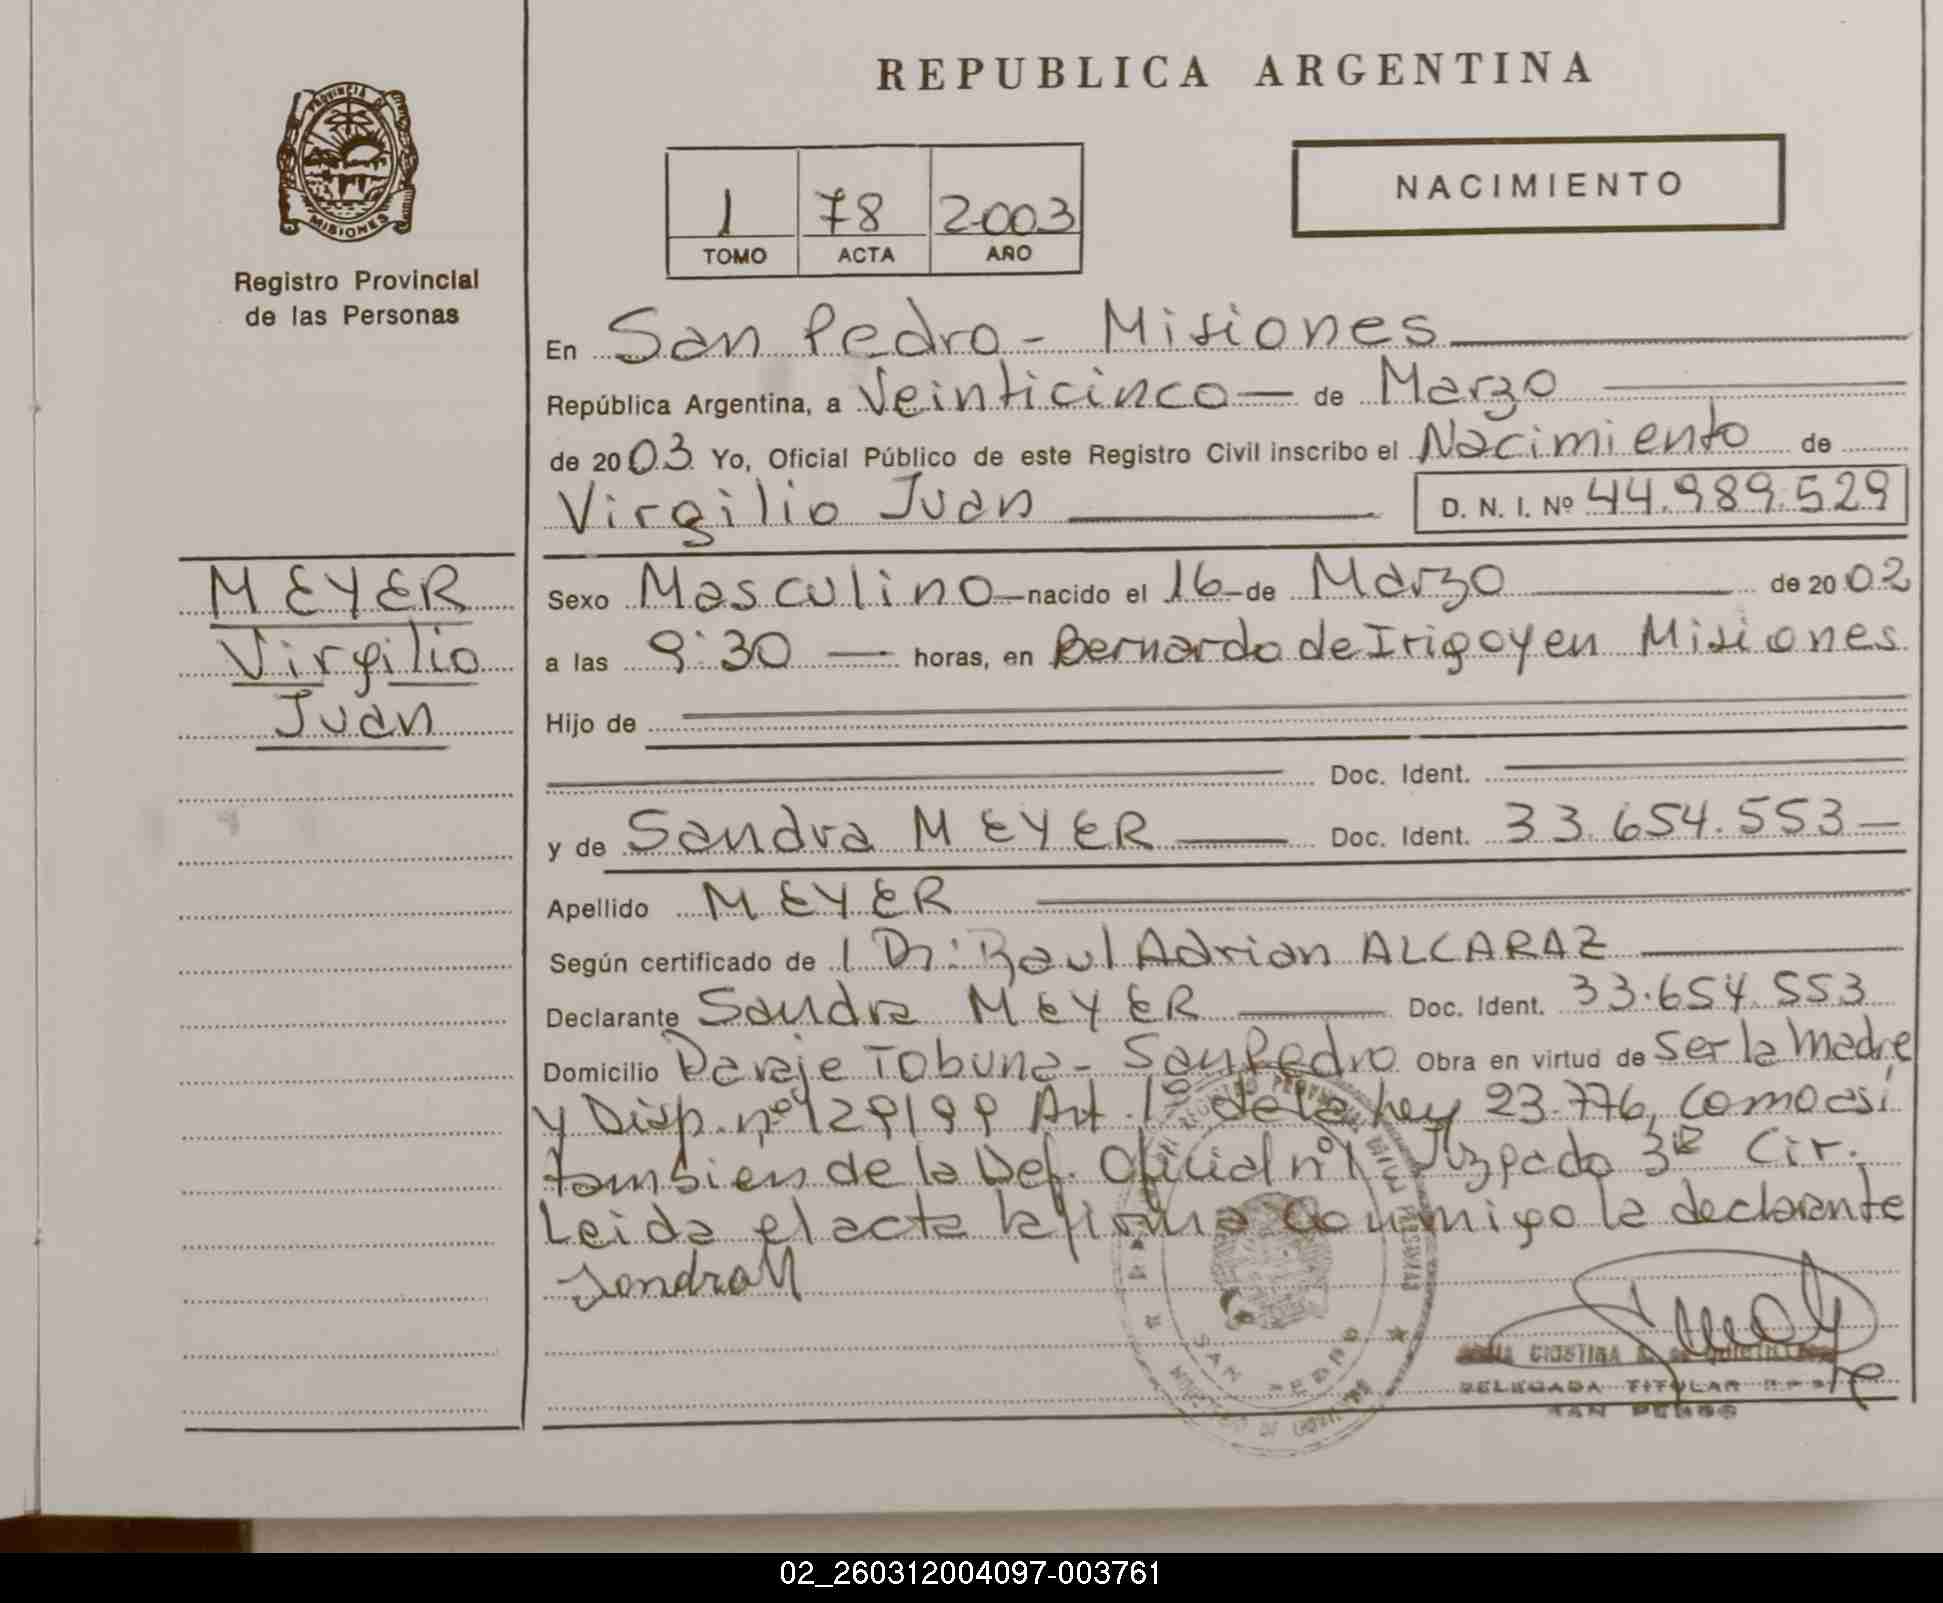 REPUBLICA ARGENTINA
PROVINCIA DE
MISIONES
Registro Provincial
de las Personas
1 78 2003
TOMO ACTA AÑO
NACIMIENTO
En San Pedro - Misiones
República Argentina, a Veinticinco — de Marzo
de 2003 Yo, Oficial Público de este Registro Civil inscribo el Nacimiento de
Virgilio Juan D. N. I. Nº 44.989.529
MEYER
Virgilio
Juan
Sexo Masculino — nacido el 16 de Marzo de 2002
a las 9:30 — horas, en Bernardo de Irigoyen Misiones
Hijo de
Doc. Ident.
y de Sandra MEYER — Doc. Ident. 33.654.553 —
Apellido MEYER
Según certificado de Dr: Raul Adrian ALCARAZ
Declarante Sandra MEYER — Doc. Ident. 33.654.553
Domicilio Paraje Tobuna - San Pedro Obra en virtud de Ser la Madre
y Disp. nº 129/99 Art. 1º de la ley 23.776, como asi
tambien de la Def. Oficial nº 1 Juzgado 3ra Cir.
Leida el acta la firma conmigo la declarante
Sandra M
SAN PEDRO
DELEGADA TITULAR
SAN PEDRO
02_260312004097-003761